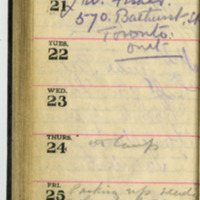 21
570. Bathurst. St
Toronto.
Ont
TUES.
22
WED.
23
THURS.
24 in Camp
FRI.
25 Packing up